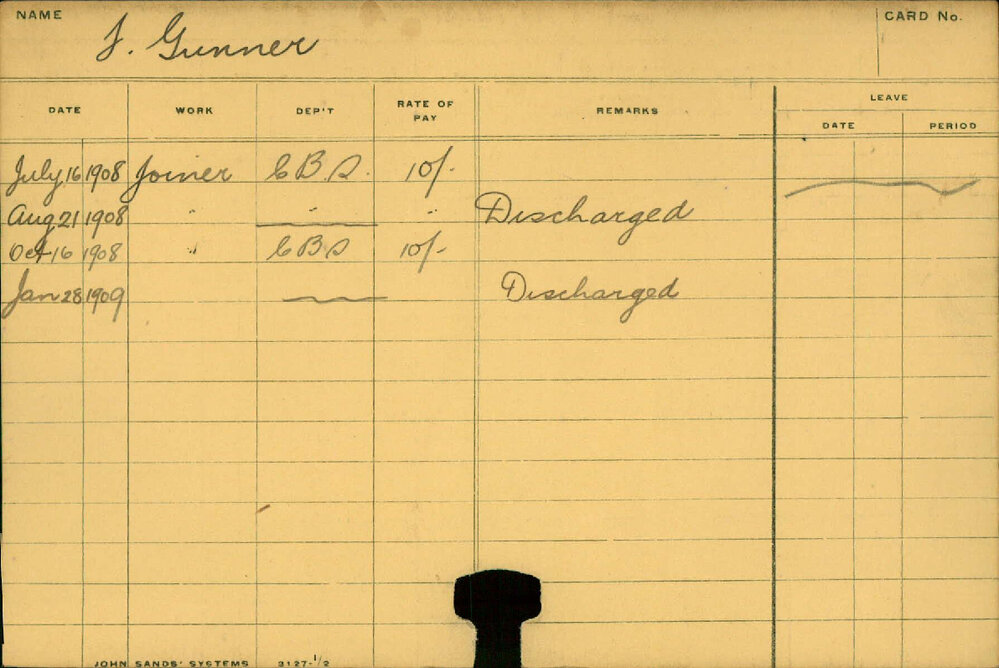 NAME
J. Gunner
CARD No.
DATE WORK DEP'T RATE OF PAY REMARKS LEAVE
DATE PERIOD
July 16 1908 Joiner C B S. 10/-
Aug 21 1908 " " " Discharged
Oct 16 1908 " C B S 10/-
Jan 28 1909 Discharged
JOHN SANDS' SYSTEMS 2127-1/2